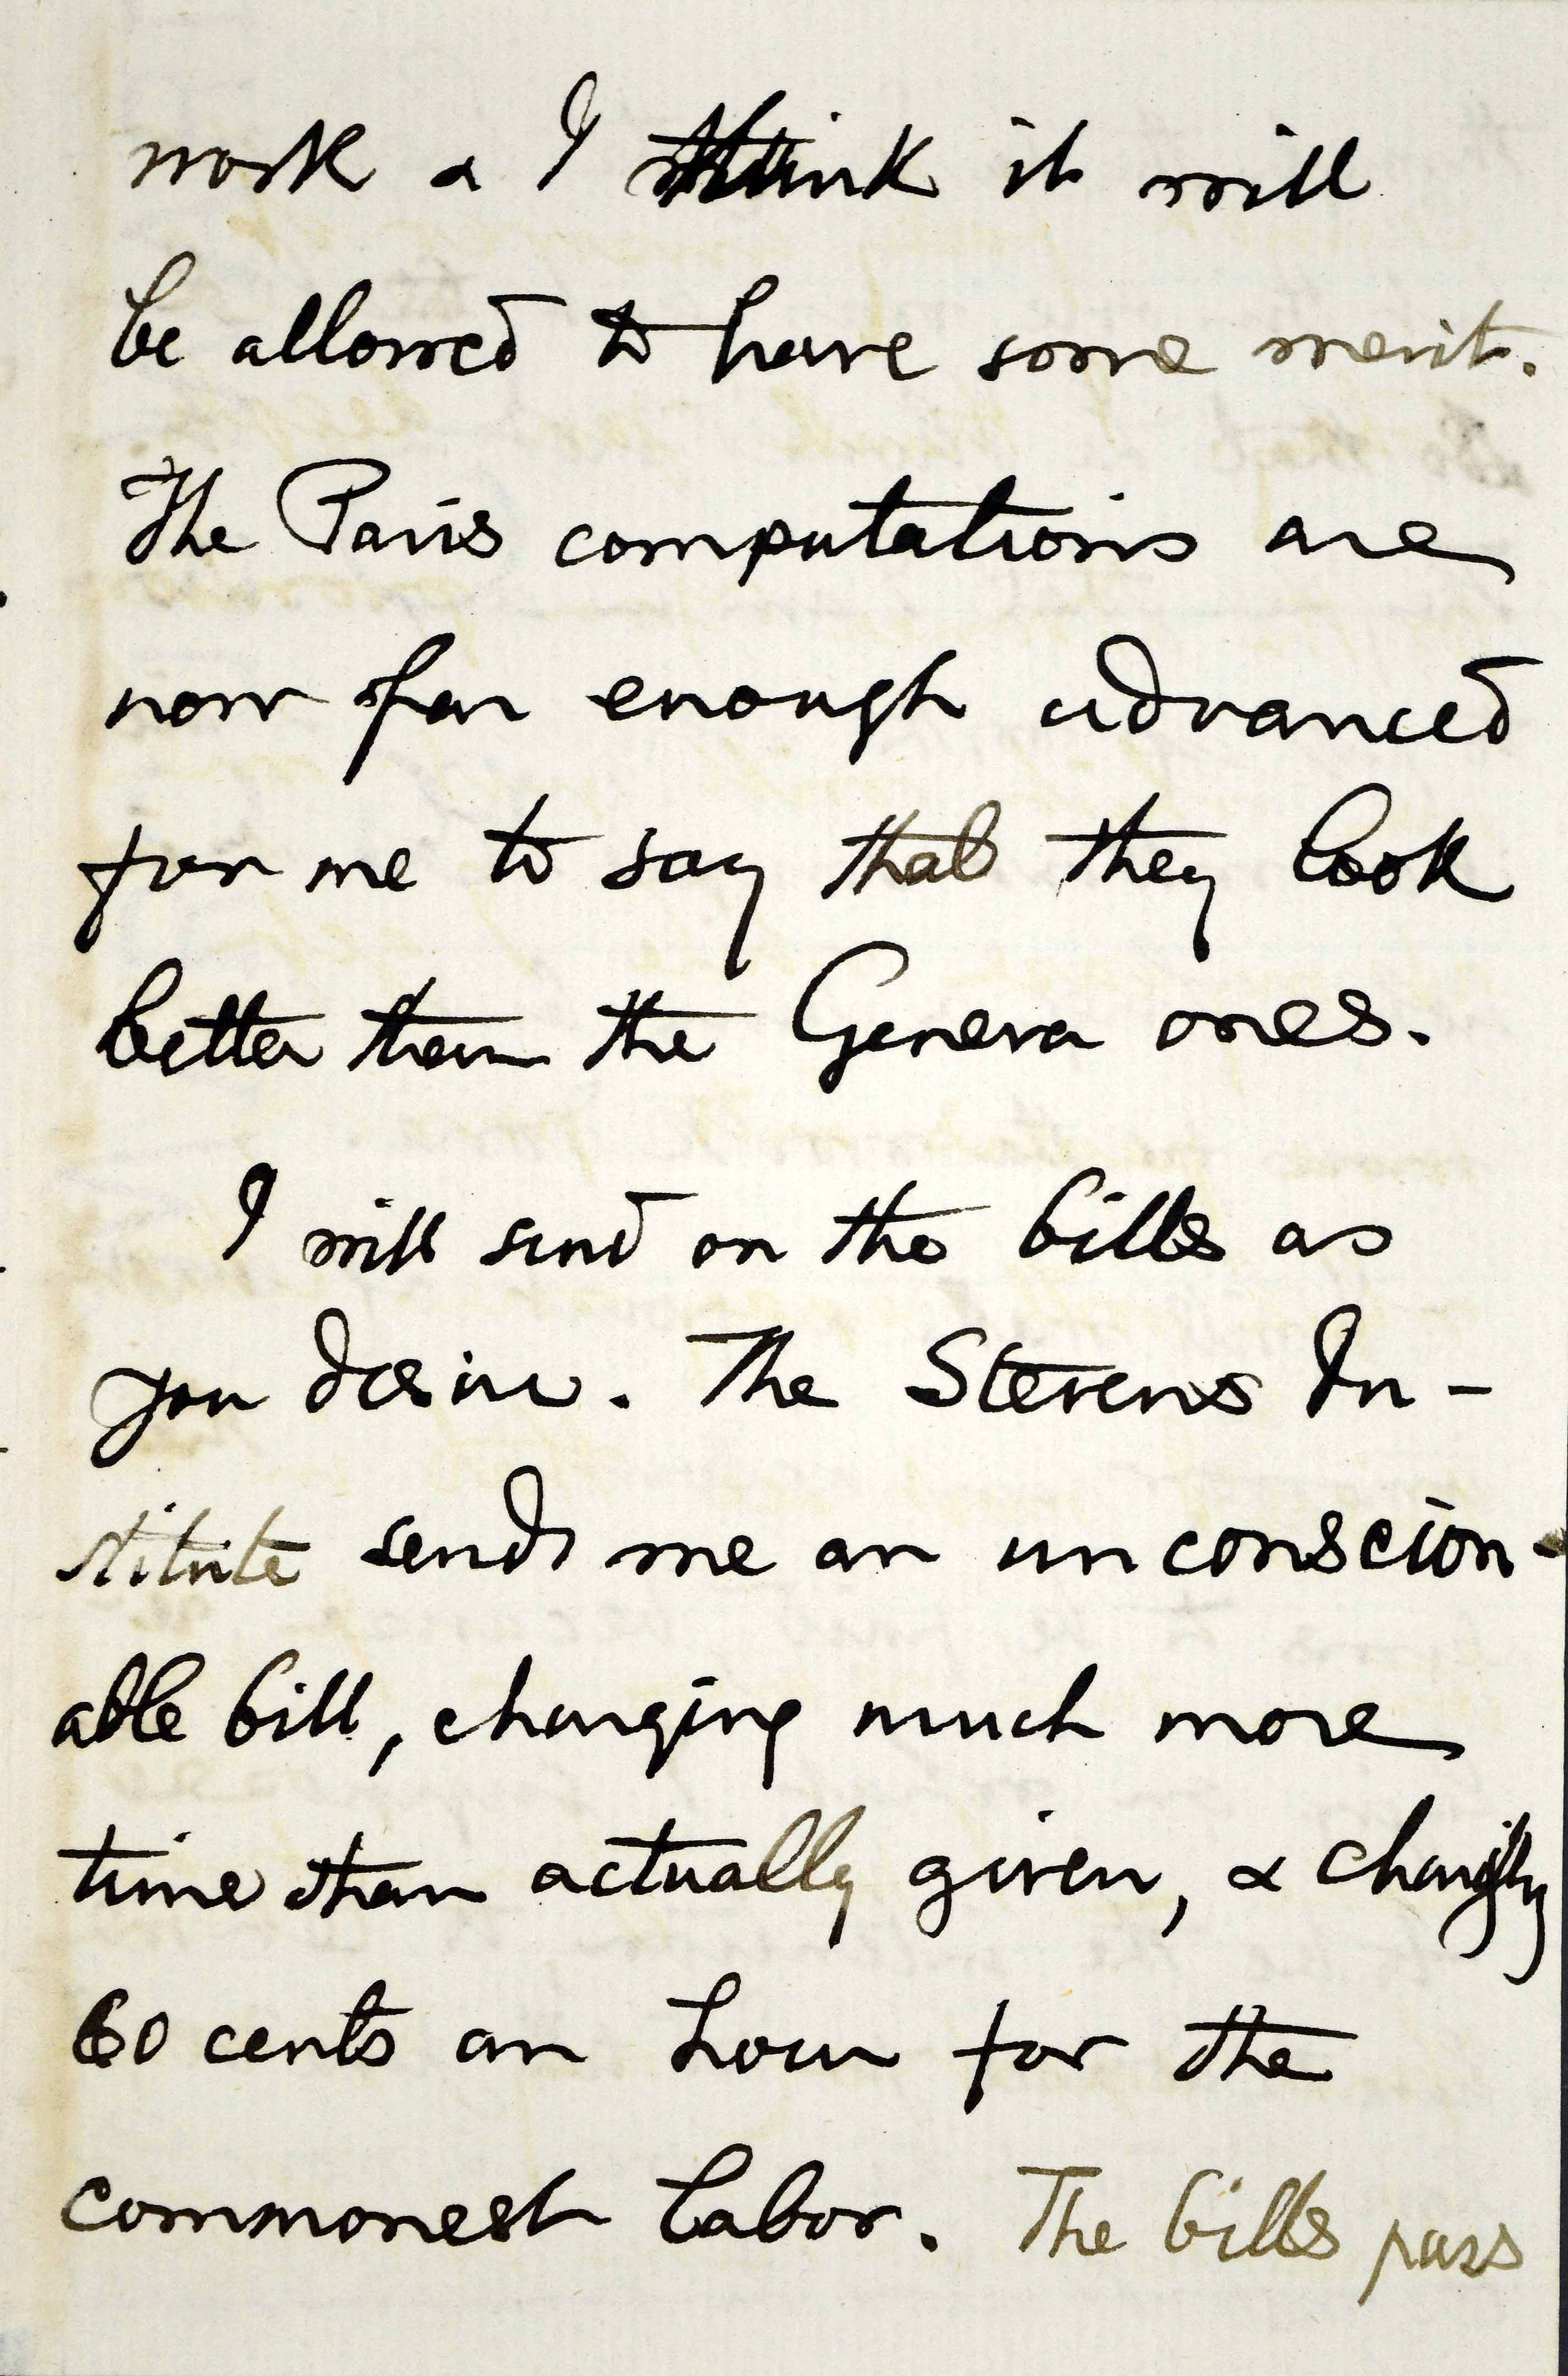 work & I think it will
be allowed to have some merit.
The Paris computations are
now far enough advanced
for me to say that they look
better than the Geneva ones.
I will send on the bills as
you desire. The Stevens In-
stitute sends me an unconscion-
able bill, charging much more
time than actually given, & charging
60 cents an hour for the
commonest labor. The bills pass